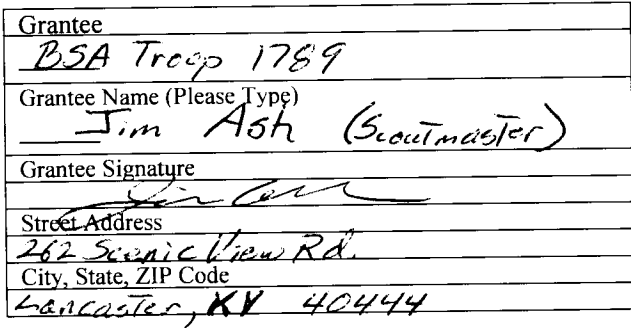 Grantee
BSA Troop 1789
Grantee Name (Please Type)
Jim Ash (Scoutmaster)
Grantee Signature
Street Address
262 Scenic View Rd.
City, State, ZIP Code
Lancaster, KY 40444